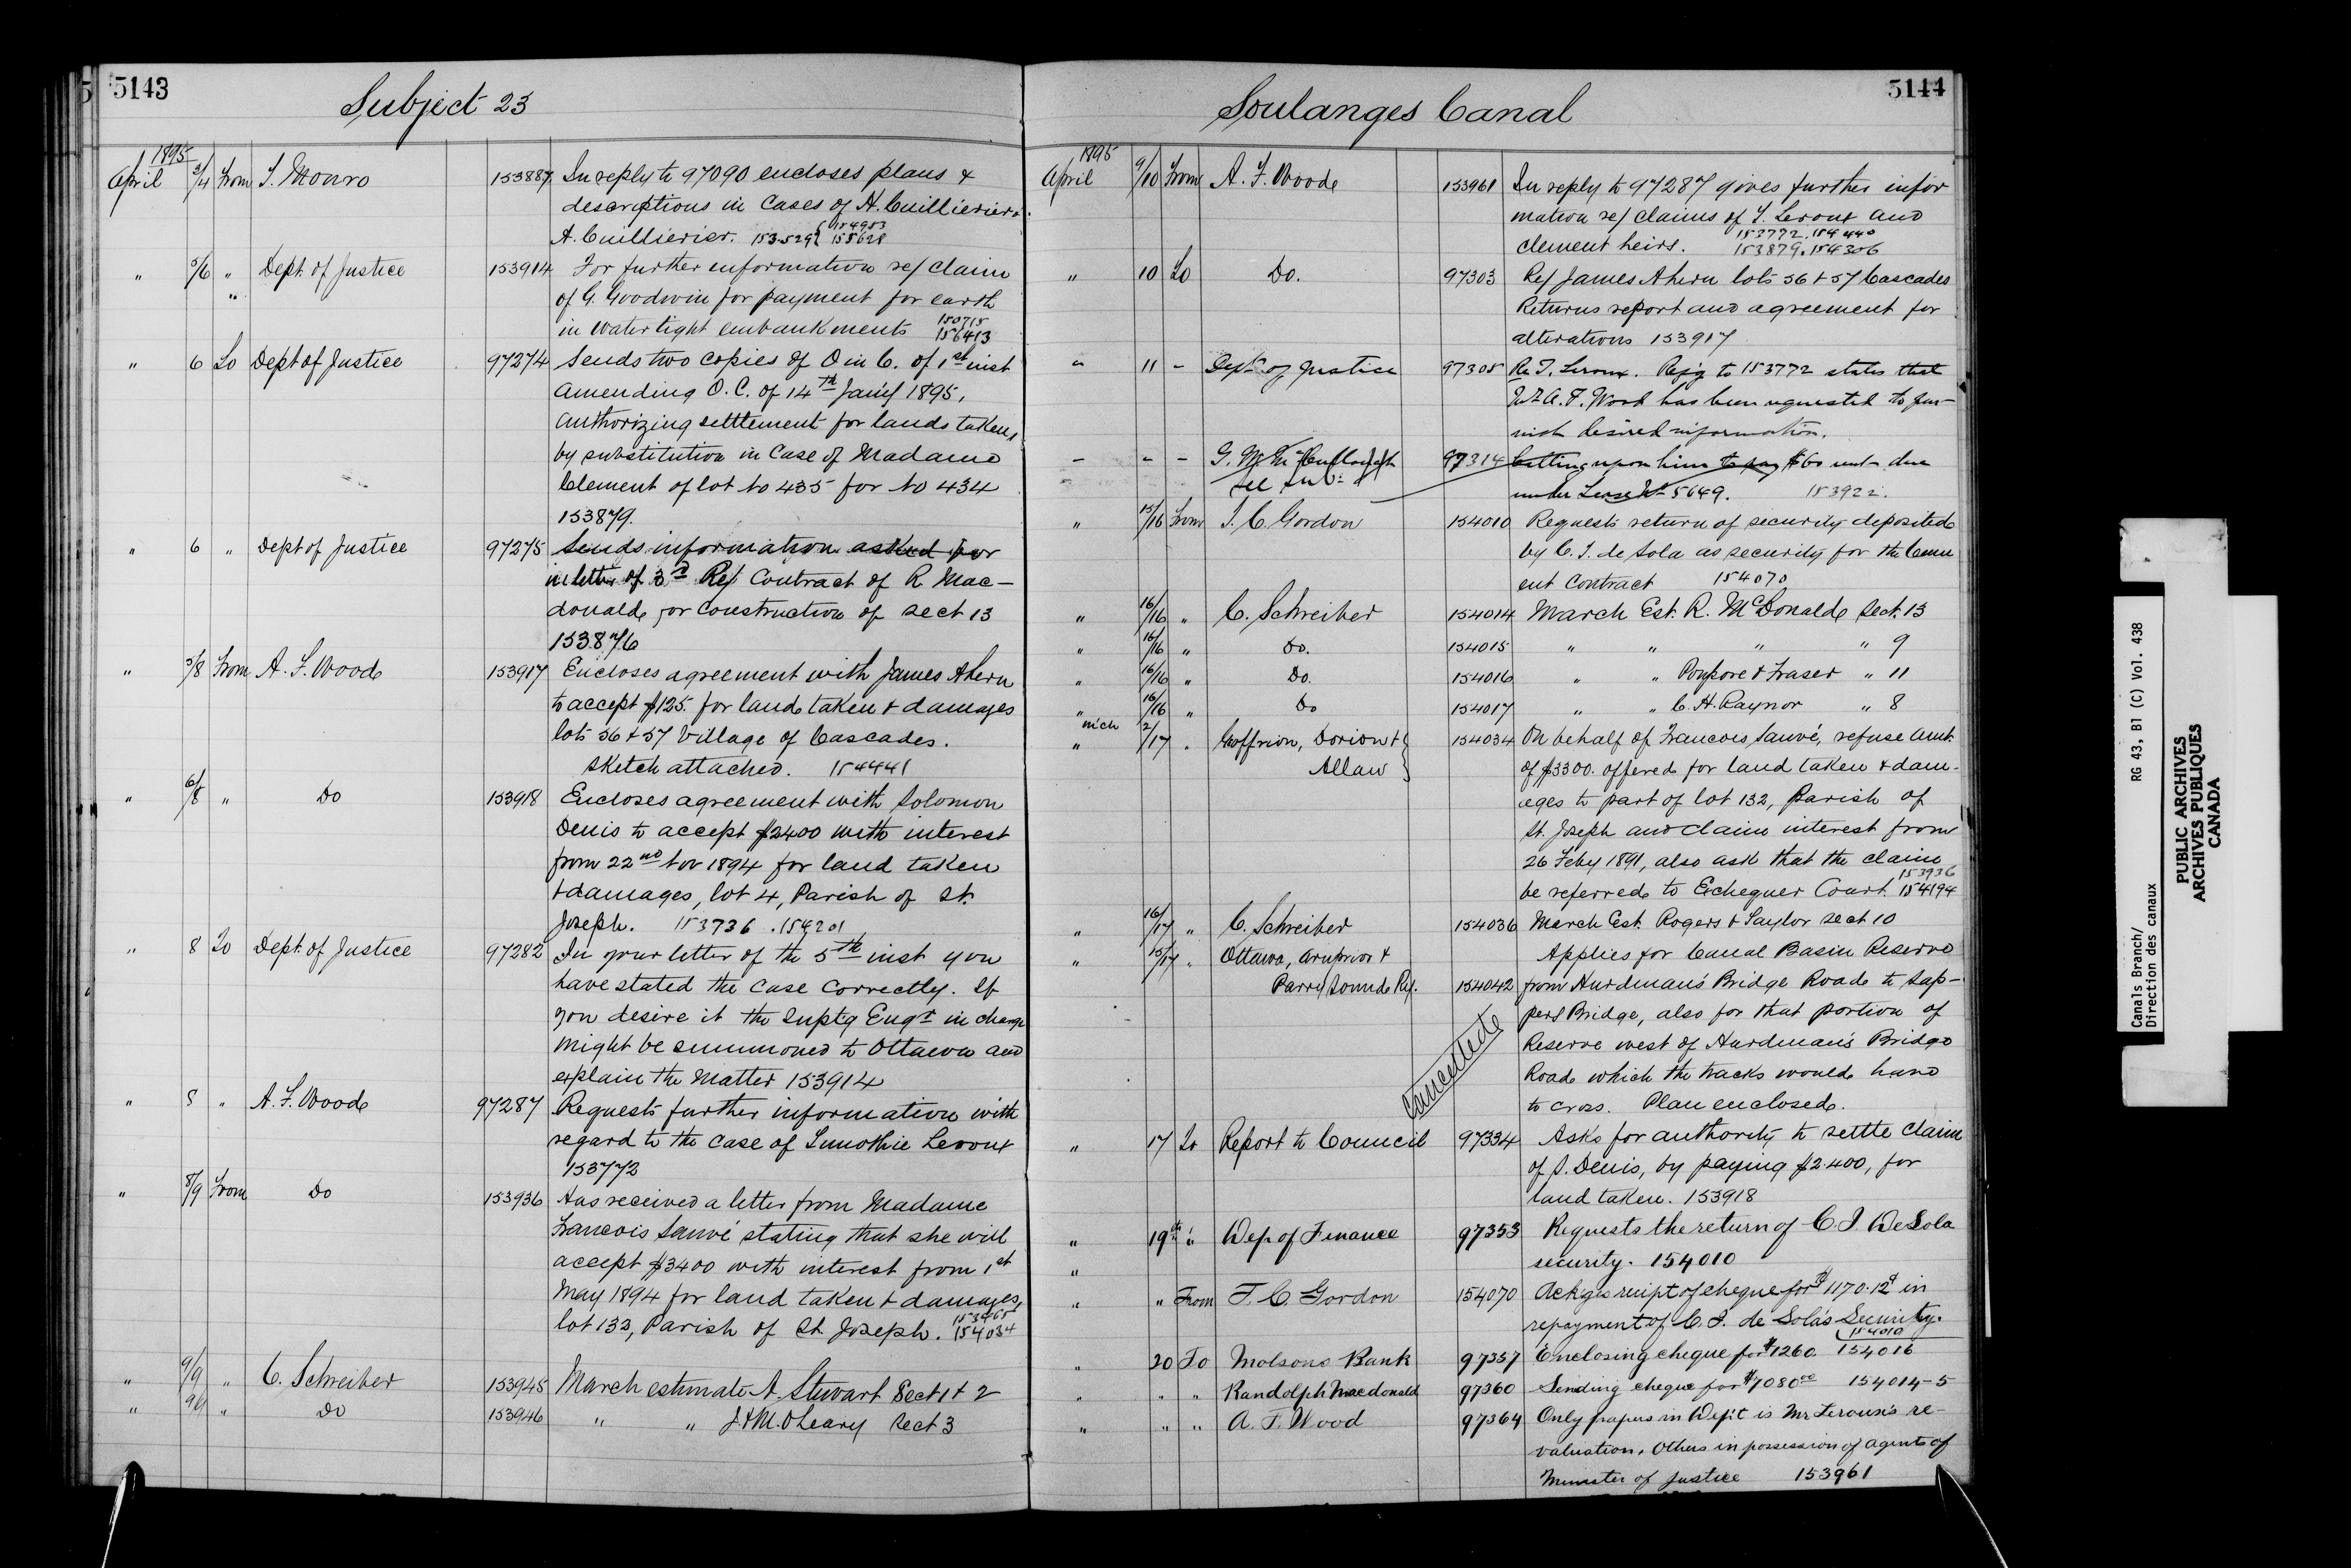 5143
Subject 23
1895
April 3/4 From T. Monro 153887 In reply to 97090 encloses plans &
descriptions in Cases of H. Cuillierier &
A. Cuillierier. 153529 { 154953 155628
" 5/6 " Dept. of Justice 153914 For further information re/ claim
" of G. Goodwin for payment for earth
in water tight embankments 150715 156413
" 6 To Dept of Justice 97274 Sends two copies of O in C. of 1st inst
amending O. C. of 14th Jany 1895,
authorizing settlement for lands taken,
by substitution in Case of Madame
Clement of lot No 435 for No 434
153879.
" 6 " Dept of Justice 97275 Sends information asked for
in letter of 3rd Re/ Contract of R. Mac-
donald, for construction of sect 13
153876
" 5/8 From A. F. Wood 153917 Encloses agreement with James Ahern
to accept $125. for land taken & damages
lots 56 & 57 Village of Cascades.
Sketch attached. 154441
" 6/8 " Do 153918 Encloses agreement with Solomon
Denis to accept $2400 with interest
from 22nd Nov 1894 for land taken
& damages, lot 4, Parish of St.
Joseph. 153736 . 154201
" 8 To Dept. of Justice 97282 In your letter of the 5th inst you
have stated the Case Correctly. If
you desire it the Suptg Engr in charge
might be summoned to Ottawa and
explain the Matter 153914
" 8 " A. F. Wood 97287 Requests further information with
regard to the case of Timothie Leroux
153772
" 8/9 From Do 153936 Has received a letter from Madame
Francois Sauvé stating that she will
accept $3400 with interest from 1st
May 1894 for land taken & damages,
lot 132, Parish of St. Joseph. 153465 154034
" 9/9 " C. Schreiber 153945 March estimate A. Stewart Sect 1 & 2
" 9/9 " Do 153946 " " J. & M. O'Leary Sect 3
5144
Soulanges Canal
1895
April 9/10 From A. F. Wood 153961 In reply to 97287 gives further infor
mation re/ claims of T. Leroux and
Clement heirs. 153772.154440 153879.154306
" 10 To Do. 97303 Re/ James Ahern lots 56 & 57 Cascades
Returns report and agreement for
alterations 153917
" 11 - Dept of Justice 97305 Re T. Leroux. Refg to 153772 states that
Mr A. F. Wood has been requested to fur-
nish desired information.
- - - G. McCullough 97314 Calling upon him to pay $60 rent due
See Sub: under Lease No 5649. 153922.
" 15/16 From T. C. Gordon 154010 Requests return of security deposited
by C. I. de Sola as security for the Cem
ent Contract 154070
" 16/16 " C. Schreiber 154014 March Est. R. McDonald Sect. 13
" 16/16 " Do. 154015 " " " " 9
" 16/16 " Do. 154016 " " Poupore & Fraser " 11
" 16/16 " Do 154017 " " C. H. Raynor " 8
mch
" 2/17 " Geoffrion, Dorion & } 154034 On behalf of Francois Sauvé, refuse amt.
Allan of $3300. offered for land taken & dam-
ages to part of lot 132, Parish of
St. Joseph and claim interest from
26 Feby 1891, also ask that the claim
be referred to Exchequer Court. 153936 154194
" 16/17 " C. Schreiber 154036 March Est. Rogers & Taylor Sect 10
" 15/17 " Ottawa, Arnprior & Applies for Canal Basin Reserve
Parry Sound Ry. 154042 from Hurdman's Bridge Road to Sap-
pers Bridge, also for that portion of
Reserve west of Hurdman's Bridge
Road which the tracks would have
to cross. Plan enclosed.
Cancelled
" 17 To Report to Council 97334 Asks for authority to settle claim
of S. Denis, by paying $2400, for
land taken. 153918
" 19th " Dep of Finance 97353 Requests the return of C. I. De Sola
" security. 154010
" " From T. C. Gordon 154070 Ackgs reeipt of cheque for $1170.12c in
repayment of C. I. de Sola's Security.
154010
" 20 To Molsons Bank 97357 Enclosing cheque for $1260. 154016
" " " Randolph Macdonald 97360 Sending cheque for $7080 00 154014-5
" " " A. F. Wood 97364 Only papers in Dep't is Mr Leroux's re-
valuation, Others in possession of agents of
Minister of Justice 153961
Canals Branch/
Direction des canaux
RG 43, B1 (C) Vol. 438
PUBLIC ARCHIVES
ARCHIVES PUBLIQUES
CANADA